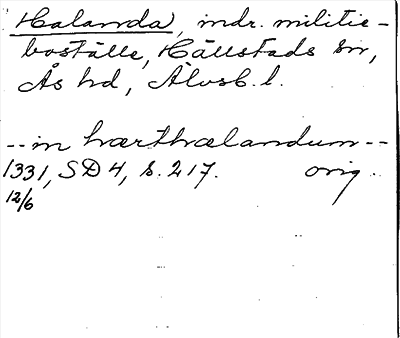 Halanda, indr. militie-
boställe, Hällstads sn,
Ås hd, Älvsb. l.
-- in hærthælandum --
1331, SD 4, s. 217. orig.
12/6